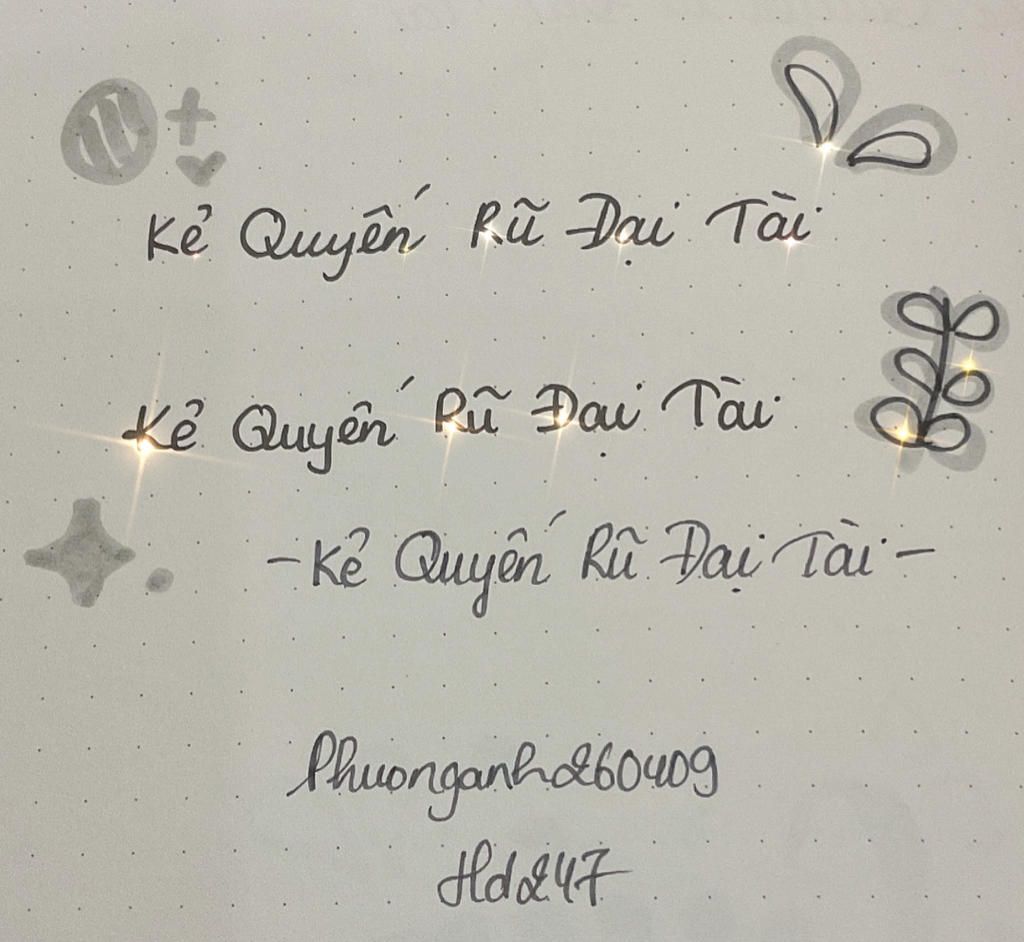 Kẻ Quyến Rũ Đại Tài
Kẻ Quyến Rũ Đại Tài
- Kẻ Quyến Rũ Đại Tài -
Phuonganh260409
Hd247